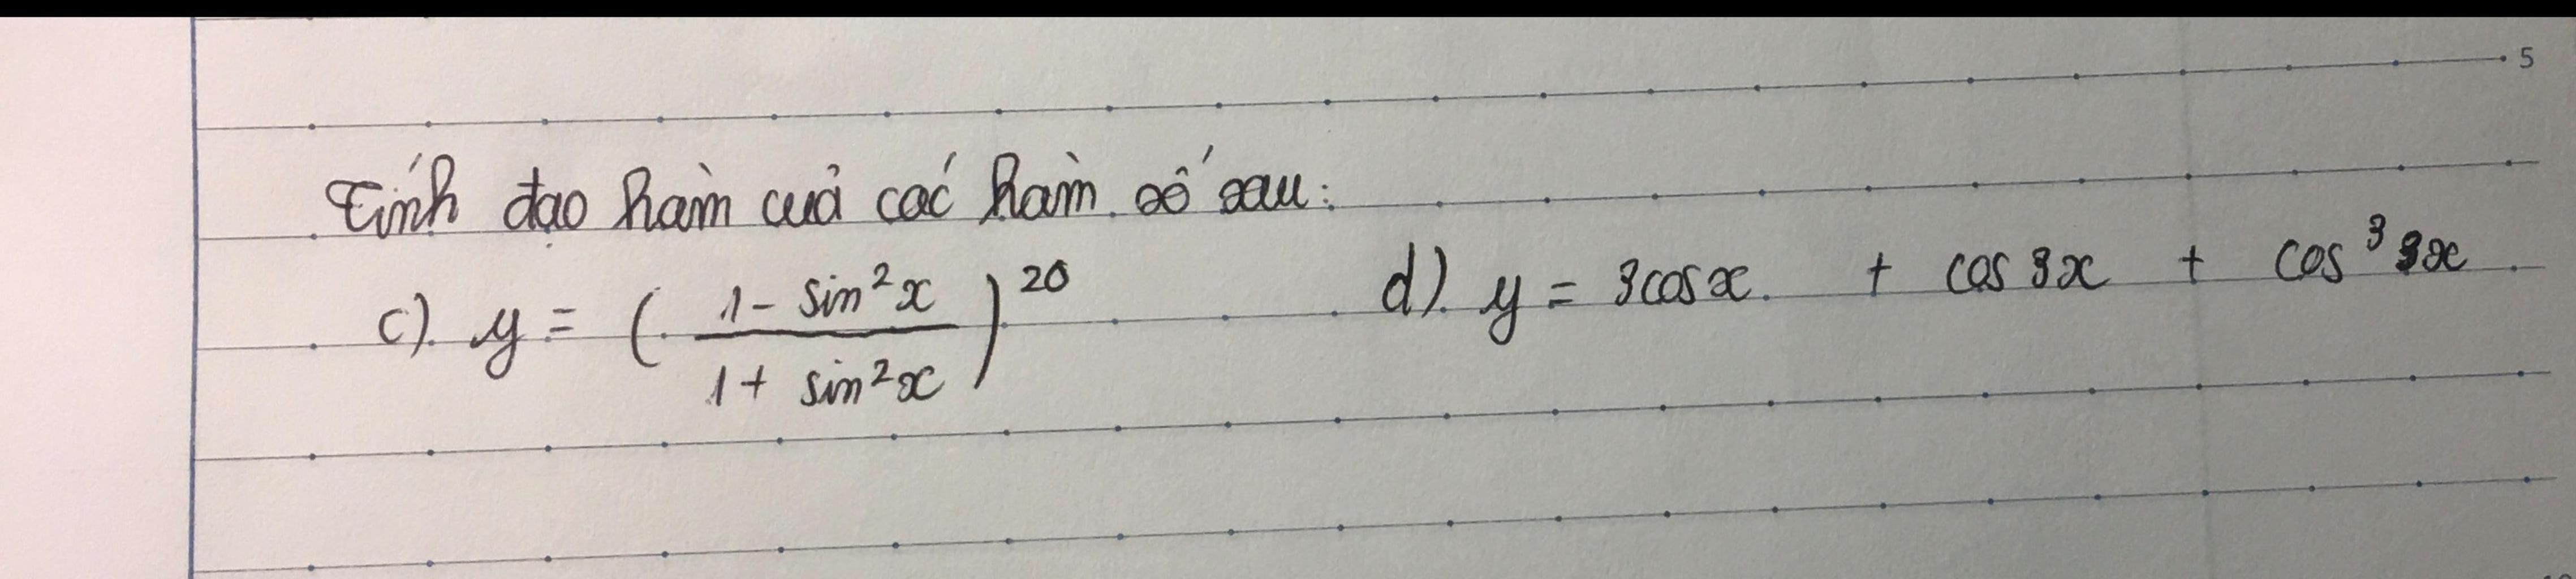 5
Tính đạo hàm của các hàm số sau:
c). y = ( (1 - sin²x) / (1 + sin²x) )²⁰ d). y = 3cosx. + cos 3x + cos³ 3x